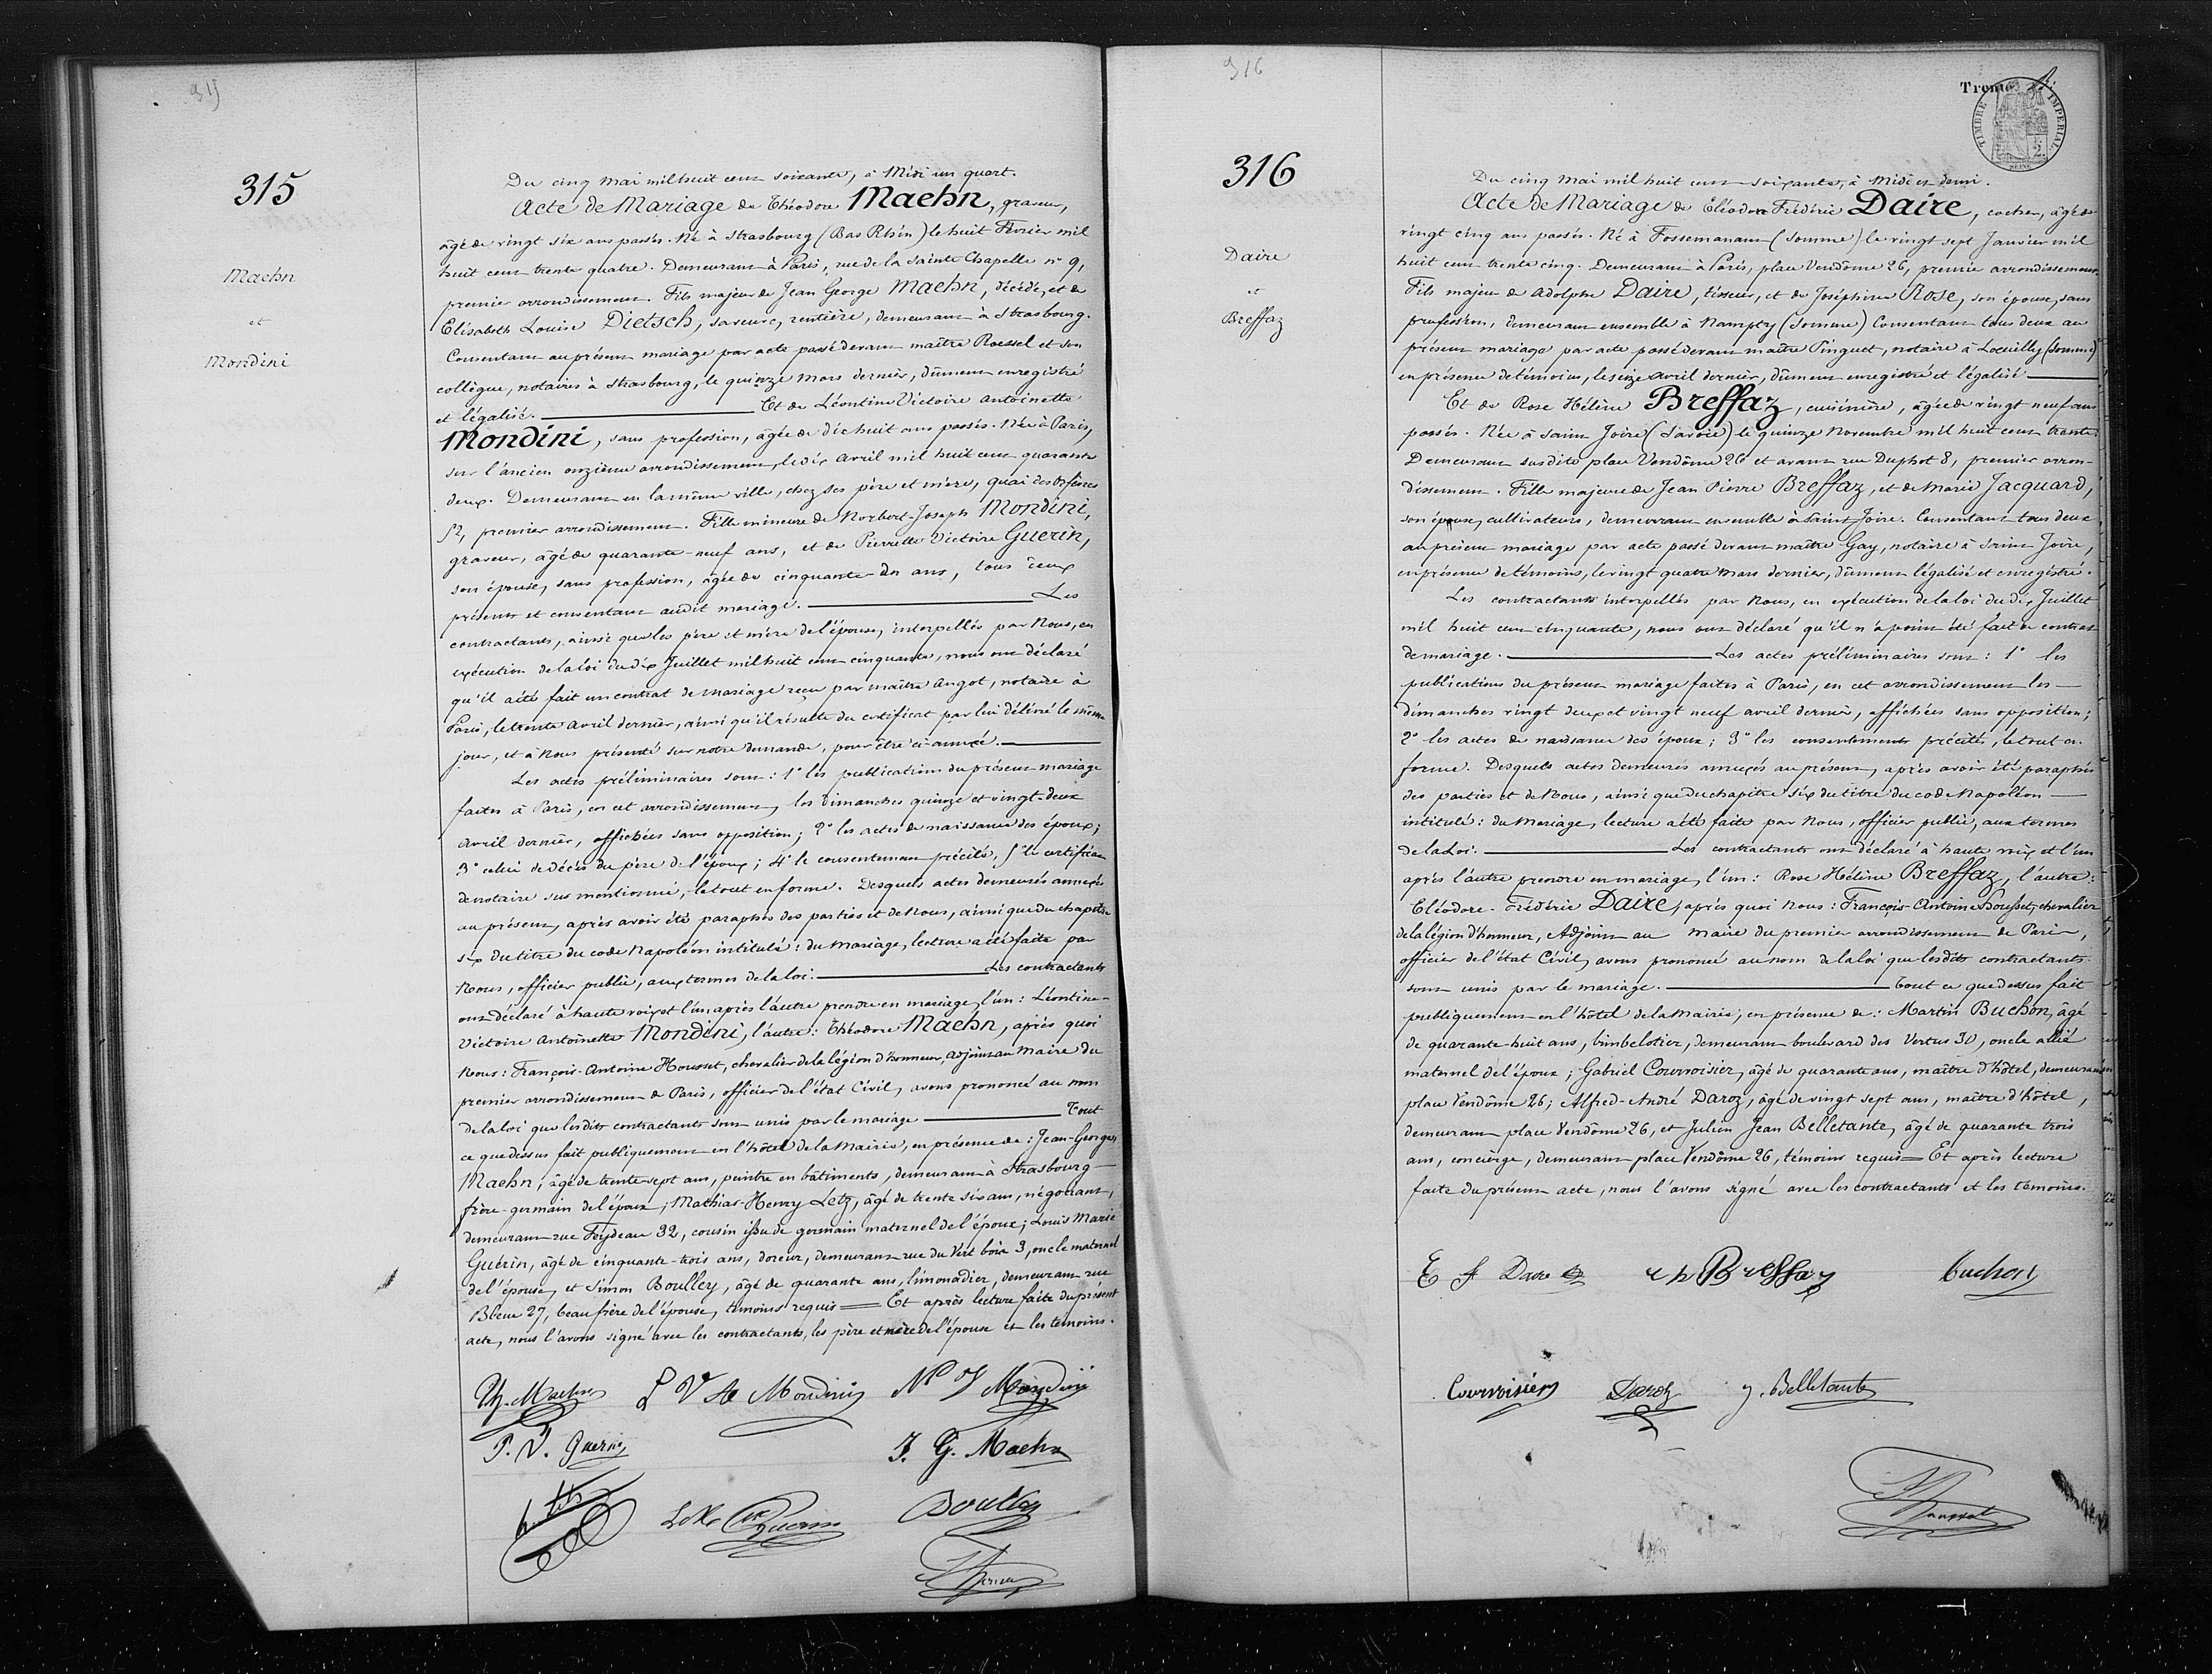 315
315
Maehn
et
Mondini
Du cinq Mai mil huit cent soixante, à Midi un quart.
Acte de Mariage de Théodore Maehn, graveur,
âgé de vingt six ans passés. Né à Strasbourg (Bas Rhin) le huit Février mil
huit cent trente quatre. Demeurant à Paris, rue de la Sainte Chapelle n° 9,
premier arrondissement. Fils majeur de Jean George Maehn, décédé, et de
Elisabeth Louise Dietsch, sa veuve, rentière, demeurant à Strasbourg.
Consentant au présent mariage par acte passé devant maître Roessel et son
collègue, notaires à Strasbourg, le quinze Mars dernier, dûment enregistré
et légalisé. Et de Léontine Victoire Antoinette
Mondini, sans profession, âgée de dix huit ans passés. Née à Paris,
sur l'ancien onzième arrondissement, le dix Avril mil huit cent quarante
deux. Demeurant en la même ville, chez ses père et mère, quai des Orfèvres
52, premier arrondissement. Fille mineure de Norbert-Joseph Mondini,
graveur, âgé de quarante-neuf ans, et de Pierrette Victoire Guérin,
son épouse, sans profession, âgée de cinquante un ans, tous deux
présents et consentant audit mariage. Les
contractants, ainsi que les père et mère de l'épouse, interpellés par Nous, en
exécution de la loi du dix Juillet mil huit cent cinquante, nous ont déclaré
qu'il a été fait un contrat de mariage reçu par maître Angot, notaire à
Paris, le trente avril dernier, ainsi qu'il résulte du certificat par lui délivré le même
jour, et à Nous présenté sur notre demande, pour être ci-annexé.
Les actes préliminaires sont: 1° les publications du présent mariage
faites à Paris, en cet arrondissement, les dimanches quinze et vingt-deux
Avril dernier, affichées sans opposition; 2° les actes de naissance des époux;
3° celui de décès du père de l'époux; 4° le consentement précité, 5° le certificat
de notaire sus mentionné, le tout en forme. Desquels actes demeurés annexés
au présent, après avoir été paraphés des parties et de Nous, ainsi que du chapitre
six du titre du code Napoléon intitulé: du Mariage, lecture a été faite par
Nous, officier public, aux termes de la loi. Les contractants
ont déclaré à haute voix et l'un après l'autre prendre en mariage, l'un: Léontine-
Victoire Antoinette Mondini, l'autre: Théodore Maehn, après quoi
Nous: François-Antoine Housset, chevalier de la légion d'honneur, adjoint au Maire du
premier arrondissement de Paris, officier de l'état Civil, avons prononcé au nom
de la loi que lesdits contractants sont unis par le mariage Tout
ce que dessus fait publiquement en l'hôtel de la Mairie, en présence de: Jean-Georges
Maehn, âgé de trente-sept ans, peintre en bâtiments, demeurant à Strasbourg
frère-germain de l'époux; Mathias-Henry Letz, âgé de trente six ans, négociant,
demeurant rue Feydeau 32, cousin issu de germain maternel de l'époux; Louis Marie
Guérin, âgé de cinquante-trois ans, doreur, demeurant rue du Vert bois 3, oncle maternel
de l'épouse, et Simon Boulley, âgé de quarante ans, limonadier, demeurant rue
Bleue 27, beau frère de l'épouse, témoins requis Et après lecture faite du présent
acte, nous l'avons signé avec les contractants, les père et mère de l'épouse et les témoins.
Th. Maehn L V A Mondini N J Mondini
P. V. Guerin J. G. Maehn
Guerin Boulley
Housset
316
316
Daire
et
Breffaz
Trente
TIMBRE IMPERIAL
SEINE
Du cinq Mai mil huit cent soixante, à Midi et demi.
Acte de Mariage de Eléodore Frédéric Daire, cocher, âgé de
vingt cinq ans passés. Né à Fossemanant (Somme) le vingt sept Janvier mil
huit cent trente cinq. Demeurant à Paris, place Vendôme 26, premier arrondissement.
Fils majeur de Adolphe Daire, tisseur, et de Joséphine Rose, son épouse, sans
profession, demeurant ensemble à Nampty (Somme) Consentant tous deux au
présent mariage par acte passé devant maître Pinguet, notaire à Loeuilly (Somme)
en présence de témoins, le seize avril dernier, dûment enregistré et légalisé
Et de Rose Hélène Breffaz, cuisinière, âgée de vingt neuf ans
passés. Née à Saint Joire (Savoie) le quinze Novembre mil huit cent trente.
Demeurant susdite place Vendôme 26 et avant rue Duphot 8, premier arron-
dissement. Fille majeure de Jean Pierre Breffaz, et de Marie Jacquard,
son épouse, cultivateurs, demeurant ensemble à Saint Joire. Consentant tous deux
au présent mariage par acte passé devant maître Gay, notaire à Saint Joire,
en présence de témoins, le vingt quatre Mars dernier, dûment légalisé et enregistré.
Les contractants interpellés par Nous, en exécution de la loi du dix Juillet
mil huit cent cinquante, nous ont déclaré qu'il n'a point été fait de contrat
de mariage. Les actes préliminaires sont: 1° les
publications du présent mariage faites à Paris, en cet arrondissement les
dimanches vingt deux et vingt neuf avril dernier, affichées sans opposition;
2° les actes de naissance des époux; 3° les consentements précités, le tout en
forme. Desquels actes demeurés annexés au présent, après avoir été paraphés
des parties et de Nous, ainsi que du chapitre six du titre du code Napoléon
intitulé: du Mariage, lecture a été faite par Nous, officier public, aux termes
de la Loi. Les contractants ont déclaré à haute voix et l'un
après l'autre prendre en mariage, l'un: Rose Hélène Breffaz, l'autre:
Eléodore-Frédéric Daire, après quoi Nous: François-Antoine Housset, chevalier
de la légion d'honneur, Adjoint au Maire du premier arrondissement de Paris,
officier de l'état Civil, avons prononcé au nom de la loi que lesdits contractants
sont unis par le mariage. Tout ce que dessus fait
publiquement en l'hôtel de la Mairie, en présence de: Martin Buchon, âgé
de quarante-huit ans, bimbelotier, demeurant boulevard des Vertus 30, oncle allié
maternel de l'époux; Gabriel Courvoisier, âgé de quarante ans, maître d'hôtel, demeurant
place Vendôme 26; Alfred-André Daroz, âgé de vingt sept ans, maître d'hôtel,
demeurant place Vendôme 26, et Julien Jean Belletante, âgé de quarante trois
ans, concierge, demeurant place Vendôme 26, témoins requis Et après lecture
faite du présent acte, nous l'avons signé avec les contractants et les témoins.
E f Daire r h Breffaz Buchon
Courvoisier Daroz J. Belletante
Housset